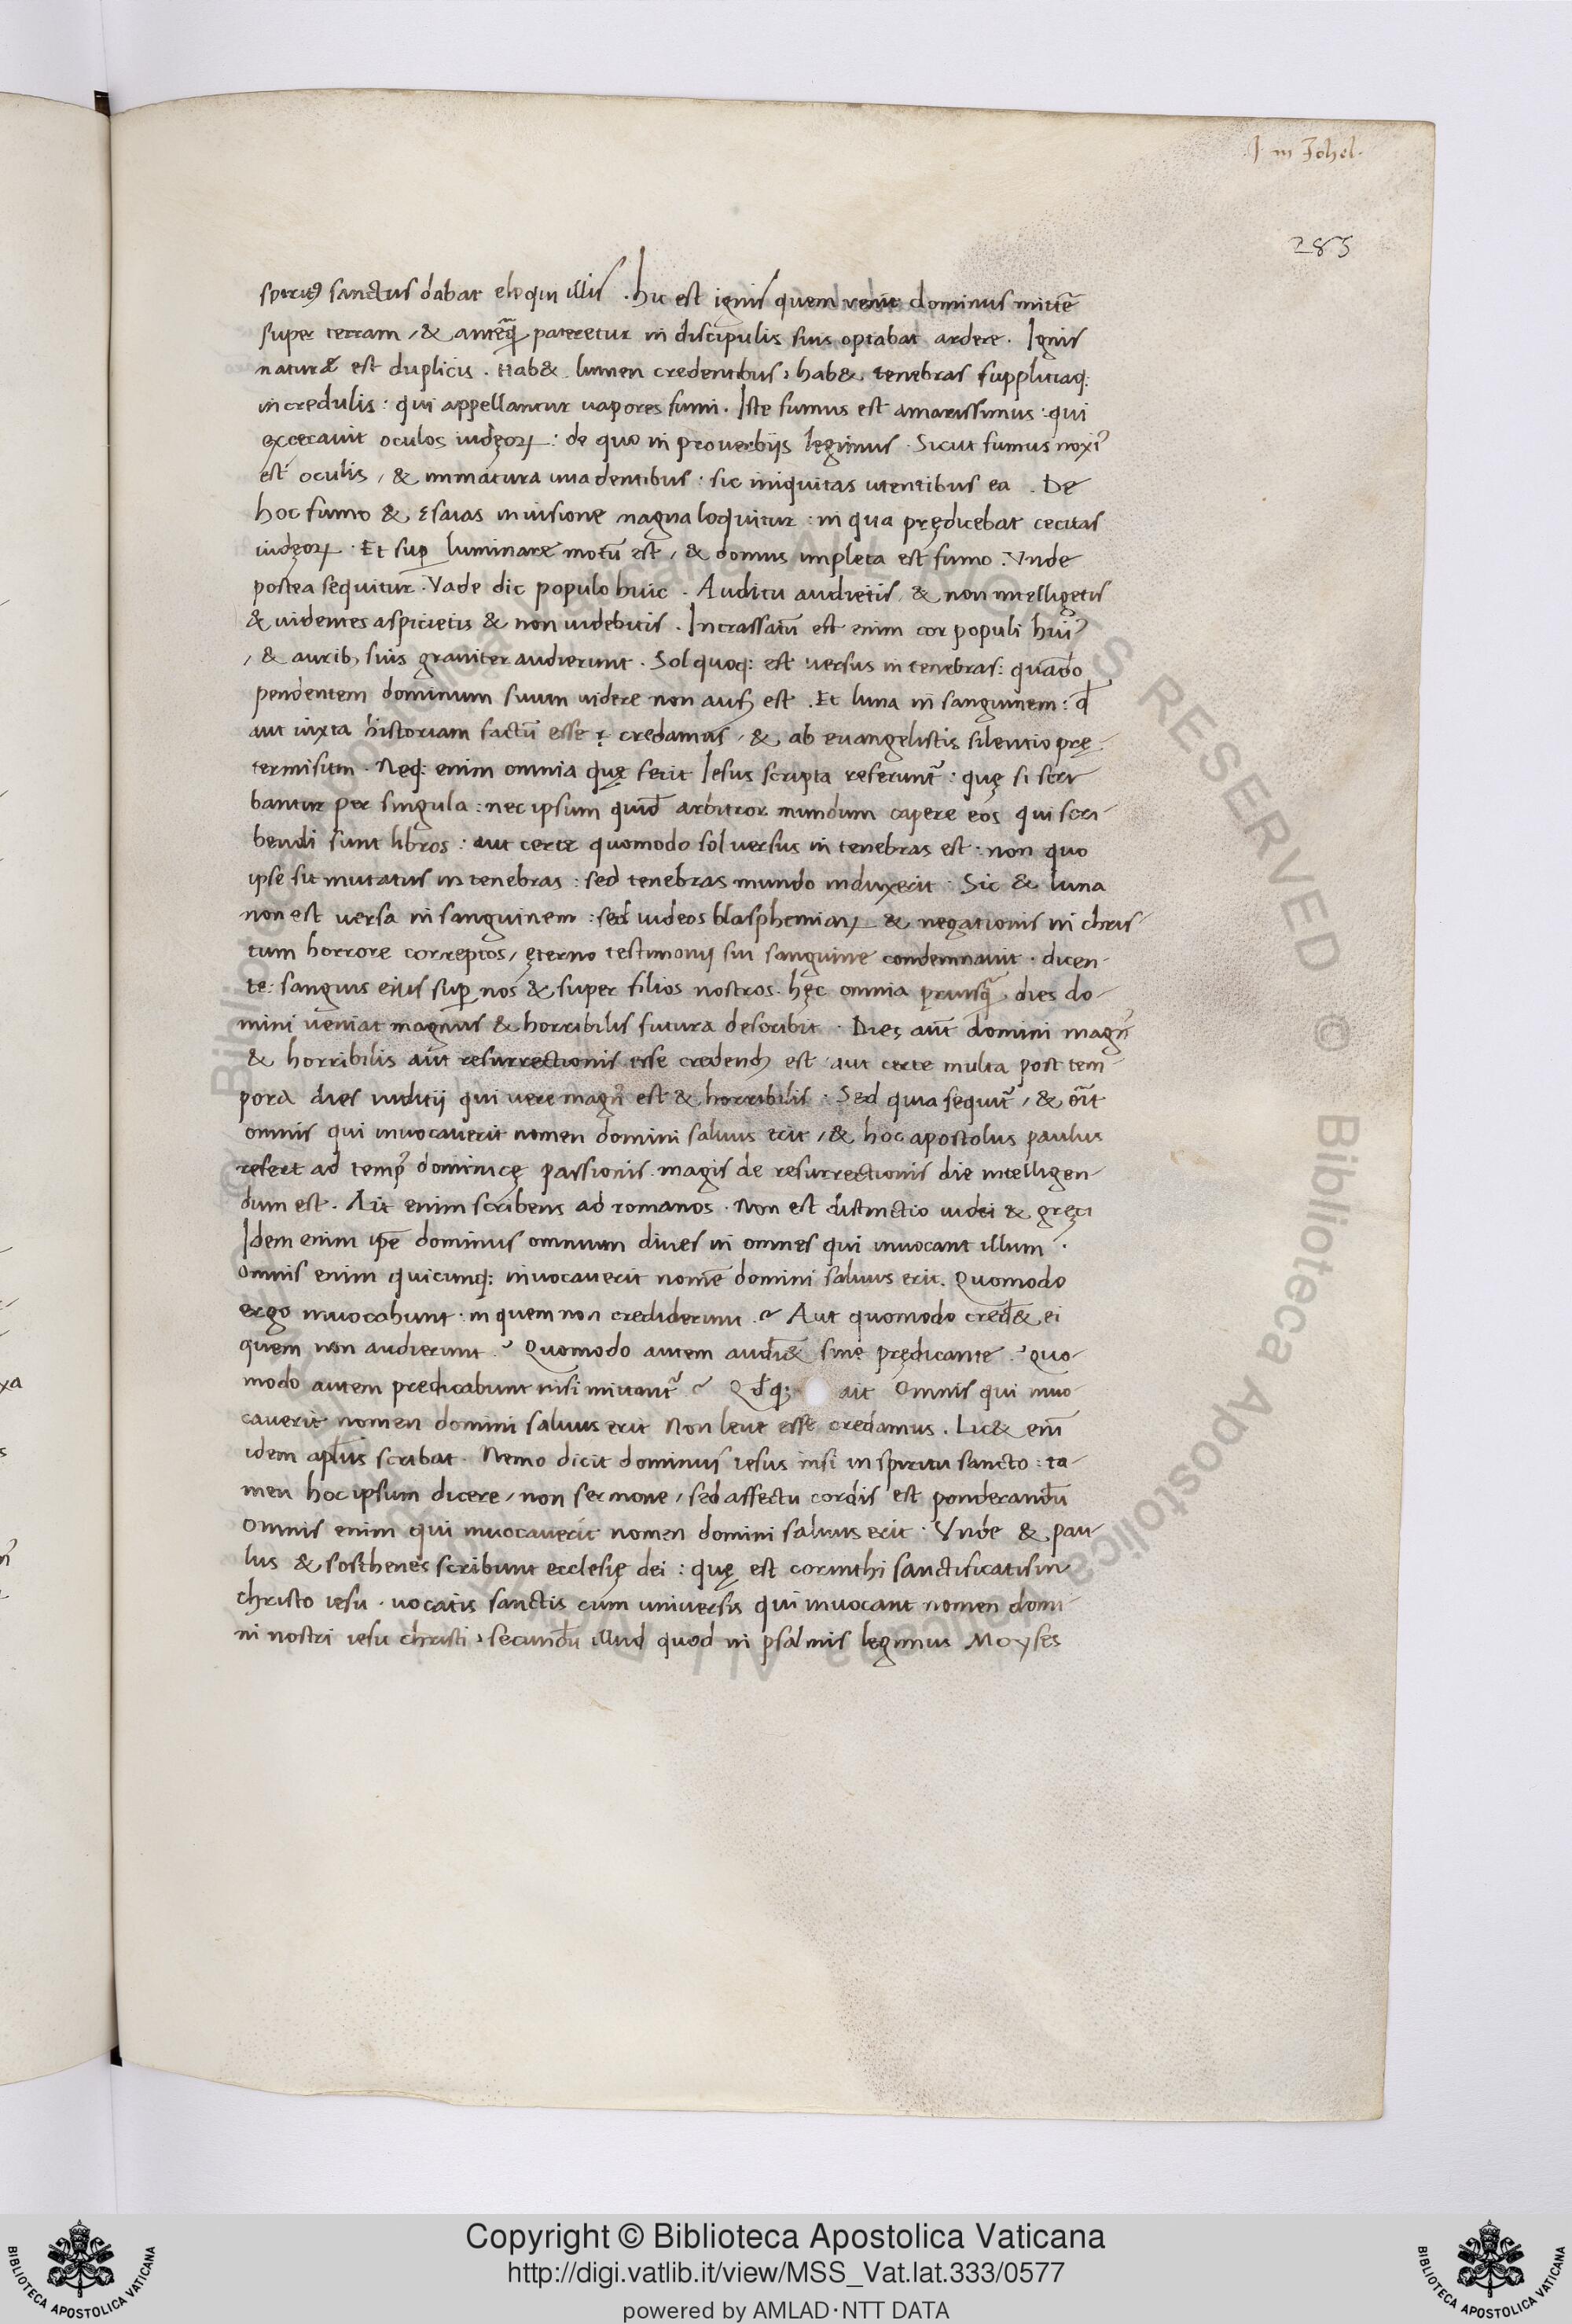 I in Johel.
285
spiritꝰ sanctus dabat eloqui illis . hic est ignis quem venit dominus mittē
super terram / & anteq̄ pateretur in discipulis suis optabat ardere . Ignis
naturæ est duplicis . Hab& lumen credentibus , hab& tenebras suppliciaq;
incredulis : qui appellantur uapores fumi . Iste fumus est amarissimus : qui
excecauit oculos iudęoꝝ : de quo in prouerbijs legimus . Sicut fumus noxiꝰ
est oculis , & inmatura uua dentibus : sic iniquitas utentibus ea . De
hoc fumo & Esaias in uisione magna loquitur : in qua prędicebat cecitas
iudęoꝝ . Et sup̱ luminare motū est , & domus impleta est fumo . Vnde
postea sequitur . Vade dic populo huic . Auditu audietis , & non intelligetis
& uidentes aspicietis & non uidebitis . Incrassatū est enim cor populi huiꝰ
/ & aurib; suis grauiter audierunt . Sol quoq; est uersus in tenebras : quādo
pendentem dominum suum uidere non ausꝰ est . Et luna in sanguinem : qđ
aut iuxta historiam factū esse credamus , & ab euangelistis silentio prę
termisum . Neq; enim omnia quę fecit Iesus scripta referuntᷣ : quę si scri
bantur per singula : nec ipsum quid arbitror mundum capere eos qui scri-
bendi sunt libros : aut certe quomodo sol uersus in tenebras est : non quo
ipse sit mutatus in tenebras : sed tenebras mundo induxerit . Sic & luna
non est uersa in sanguinem : sed iudeos blasphemiaꝝ & negationis in chris
tum horrore correptos , ęterno testimonij sui sanguine condemnauit . dicen-
te : sanguis eius sup̱ nos & super filios nostros . hęc omnia priusq̄ dies do-
mini ueniat magnus & horribilis futura describit . Dies aūt domini magnꝰ
& horribilis aut resurrectionis esse credendꝰ est aut certe multa post tem-
pora dies iuditij qui uere magnꝰ est & horribilis . Sed quia sequitᷣ , & oīt
omnis qui inuocauerit nomen domini saluus erit , & hoc apostolus paulus
refert ad tempꝰ dominicę passionis magis de resurrectionis die intelligen-
dum est . Ait enim scribens ad romanos . Non est distinctio iudei & gręci
Idem enim ip̄e dominus omnium diues in omnes qui inuocant illum .
Omnis enim quicunq; inuocauerit nomē domini saluus erit . Quomodo
ergo inuocabunt . in quem non crediderunt ? Aut quomodo cred& ei
quem non audierunt ? Quomodo autem audi& sine prędicante ? Quo-
modo autem predicabunt nisi mittantᷣ ? Qđq; ait Omnis qui inuo-
cauerit nomen domini saluus erit Non leue esse credamus . Lic& enī
idem apl̄us scribat . Nemo dicit dominus iesus nisi in spiritu sancto : ta-
men hoc ipsum dicere , non sermone , sed affectu cordis est ponderandū
Omnis enim qui inuocauerit nomen domini saluus erit . Vnde & pau-
lus & sosthenes scribunt ecclesię dei : quę est corinthi sanctificatis in
christo iesu . uocatis sanctis cum uniuersis qui inuocant nomen domi-
ni nostri iesu christi , secundū illud quod in psalmis legimus Moyses
Copyright © Biblioteca Apostolica Vaticana
http://digi.vatlib.it/view/MSS_Vat.lat.333/0577
powered by AMLAD·NTT DATA